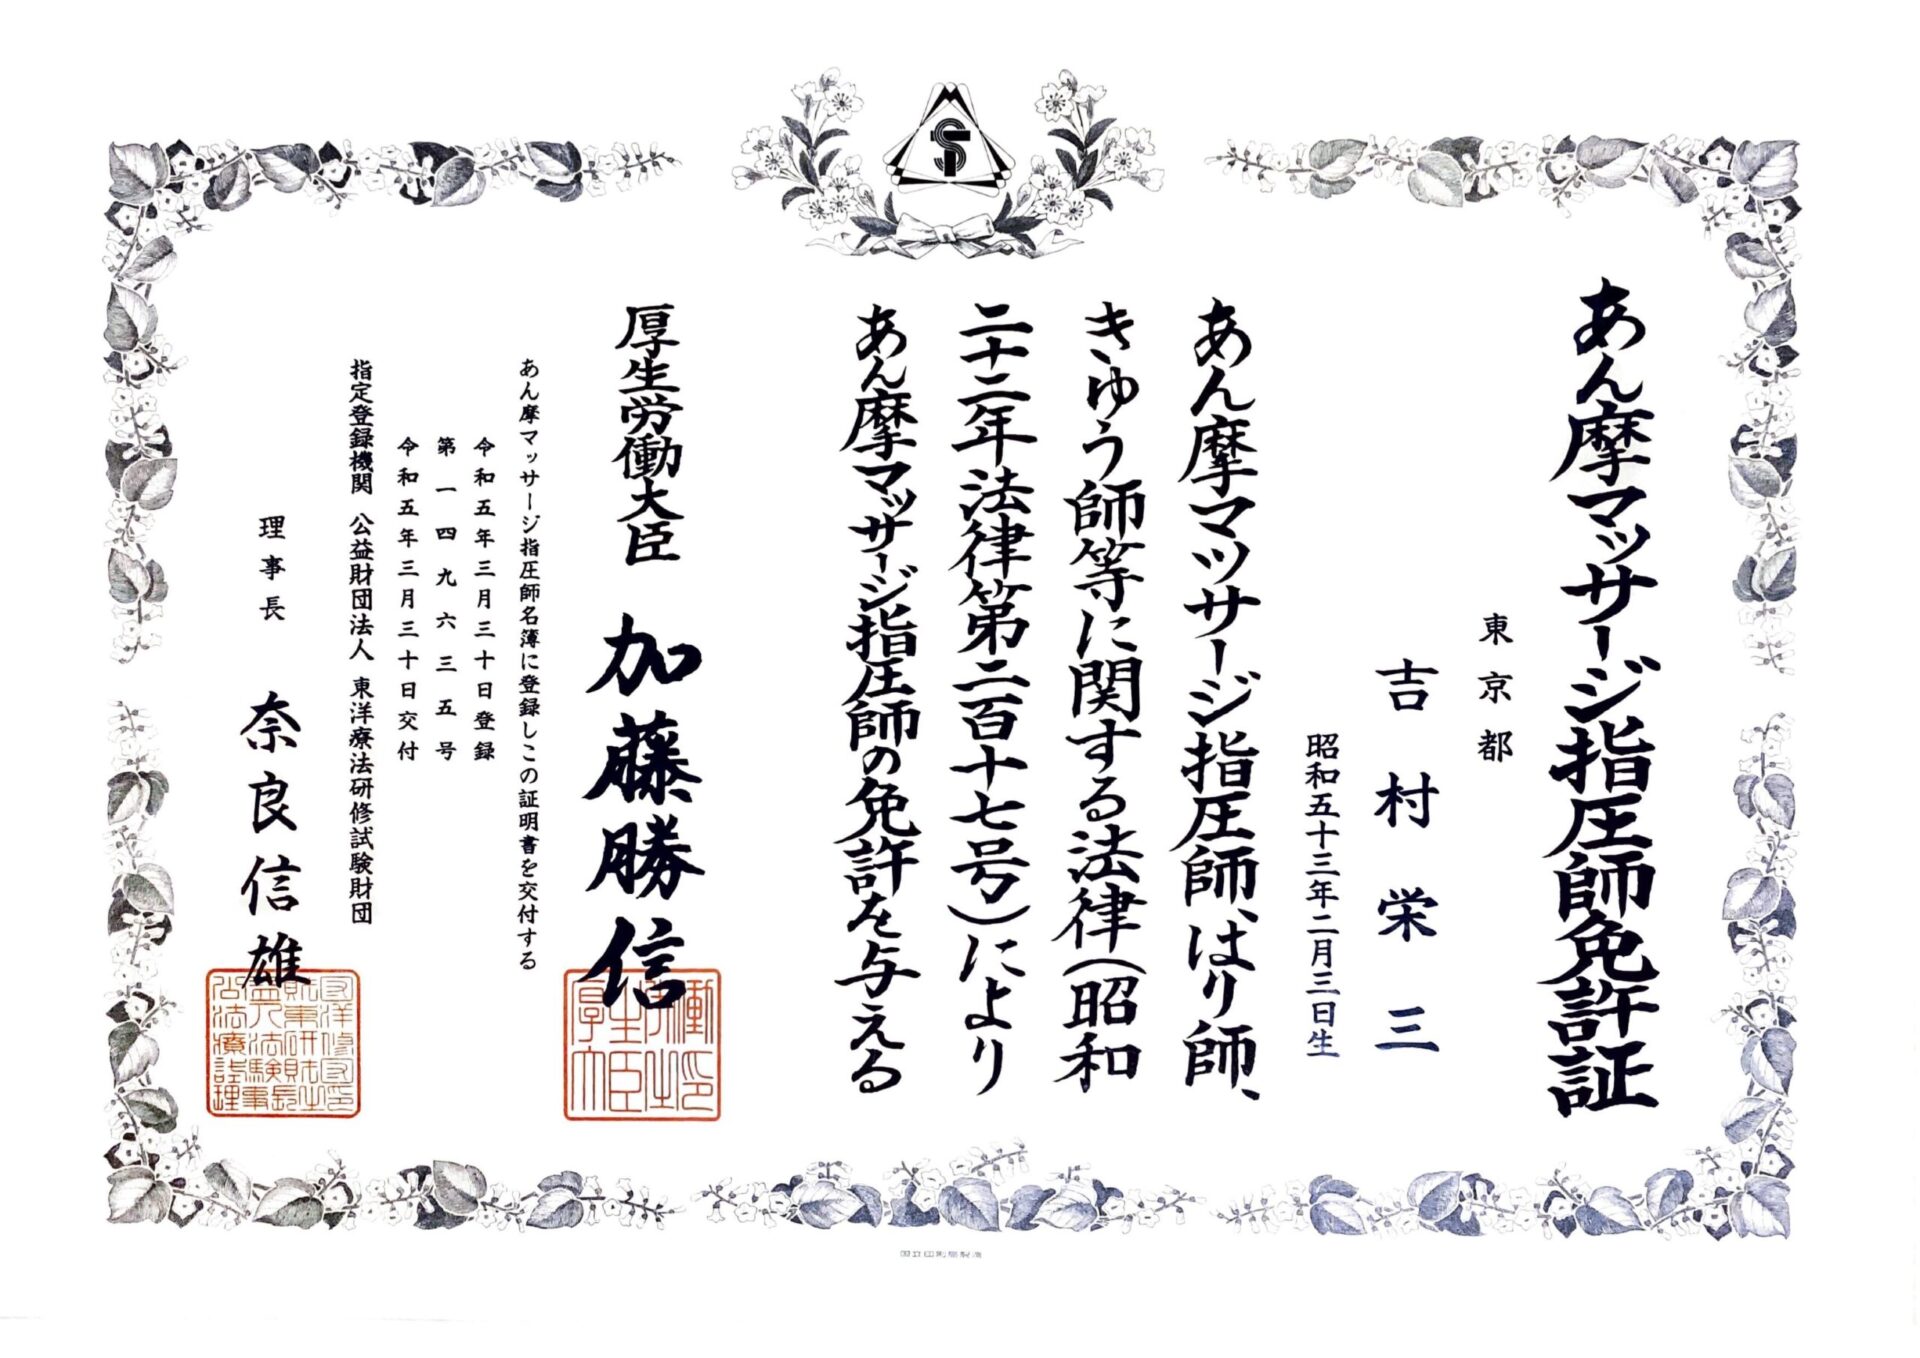 あん摩マッサージ指圧師免許証
東京都
吉村栄三
昭和五十三年二月三日生
あん摩マツサージ指圧師、はり師、
きゆう師等に関する法律(昭和
二十二年法律第二百十七号)により
あん摩マッサージ指圧師の免許を与える
厚生労働大臣 加藤勝信
あん摩マッサージ指圧師名簿に登録しこの証明書を交付する
令和五年三月三十日登録
第一四九六三五号
令和五年三月三十日交付
指定登録機関 公益財団法人 東洋療法研修試験財団
理事長 奈良信雄